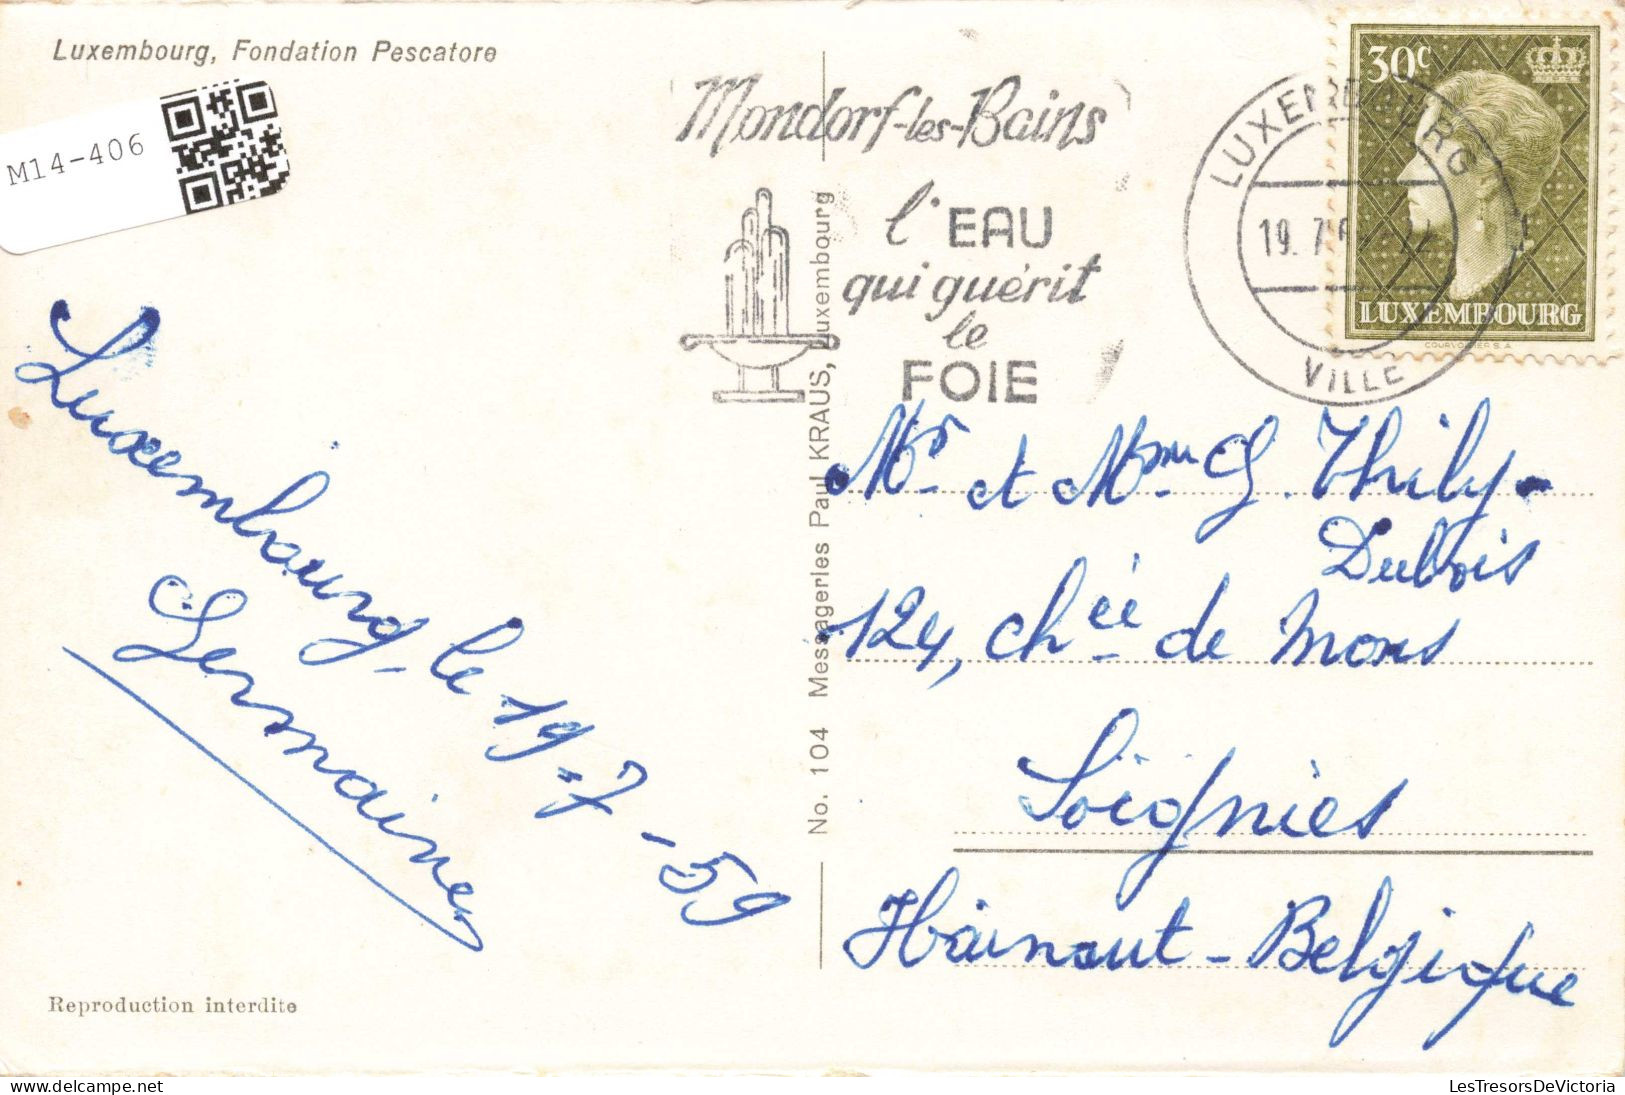 Luxembourg, Fondation Pescatore
M14-406
Mondorf-les-Bains
l'EAU
qui guérit
le
FOIE
LUXEMBOURG
19. 7
VILLE
30c
LUXEMBOURG
COURVOISIER S.A.
Luxembourg, le 19-7-59
Germaine
No. 104 Messageries Paul KRAUS, Luxembourg
Mr et Mme G. Thily-
Dubois
124, chée de Mons
Soignies
Hainaut - Belgique
Reproduction interdite
delcampe.net
LesTresorsDeVictoria